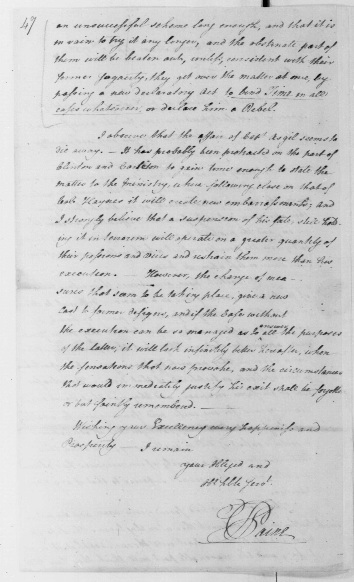 47
an unsuccessful scheme long enough, and that it is
in vain to try it any longer, and the obstinate part of
them will be beaten out, unless, consistent with their
former sagacity, they get over the matter at once, by
passing a new declaratory Act to bind Time in all
cases whatsoever, or declare him a Rebel.
I observe that the affair of Capt Asgil seems to
die away. — It has probably been protracted on the part of
Clinton and Carleton to gain time enough to state the
matter to the Ministry, where following close on that of
Colo Haynes it will create new embarrassments; and
I strongly believe that a suspension of his fate, still hold-
ing it in terrorem will operate on a greater quantity of
their passions and vices and restrain them more than his
execution. — However, the change of mea-
sures that seem to be taking place, give a new
Cast to former designs, and if the Case without
the execution can be so managed as to answer all the purposes
of the latter, it will look infinitely better hereafter, when
the sensations that now provoke, and the circumstances
that would immediately justify his exit shall be forgotten
or but faintly remembered. —
Wishing your Excellency every happiness and
Prosperity — I remain
your Obliged and
Hble Servt
Paine